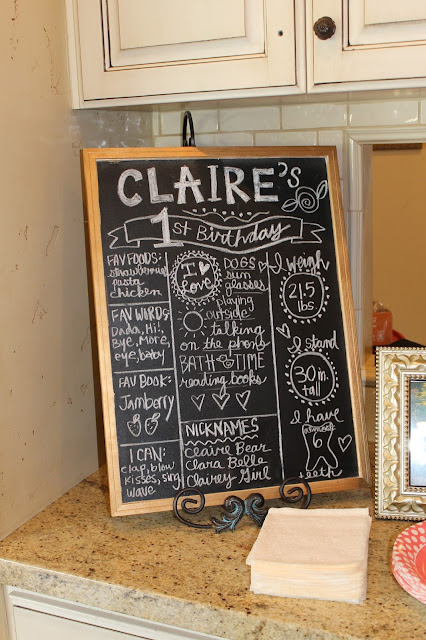 CLAIRE's
1st Birthday
FAV FOODS:
strawberries
pasta
chicken
FAV WORDS:
Dada, Hi!,
Bye, More,
eye, baby
FAV BOOK:
Jamberry
I CAN:
clap, blow
kisses, sing
wave
I
love
DOGS
sun
glasses
playing
outside
talking
on the phone
BATH TIME
reading books
NICKNAMES
Claire Bear
Clara Belle
Clairey Girl
I weigh
21.5
lbs
I stand
30 in.
tall
I have
6
teeth